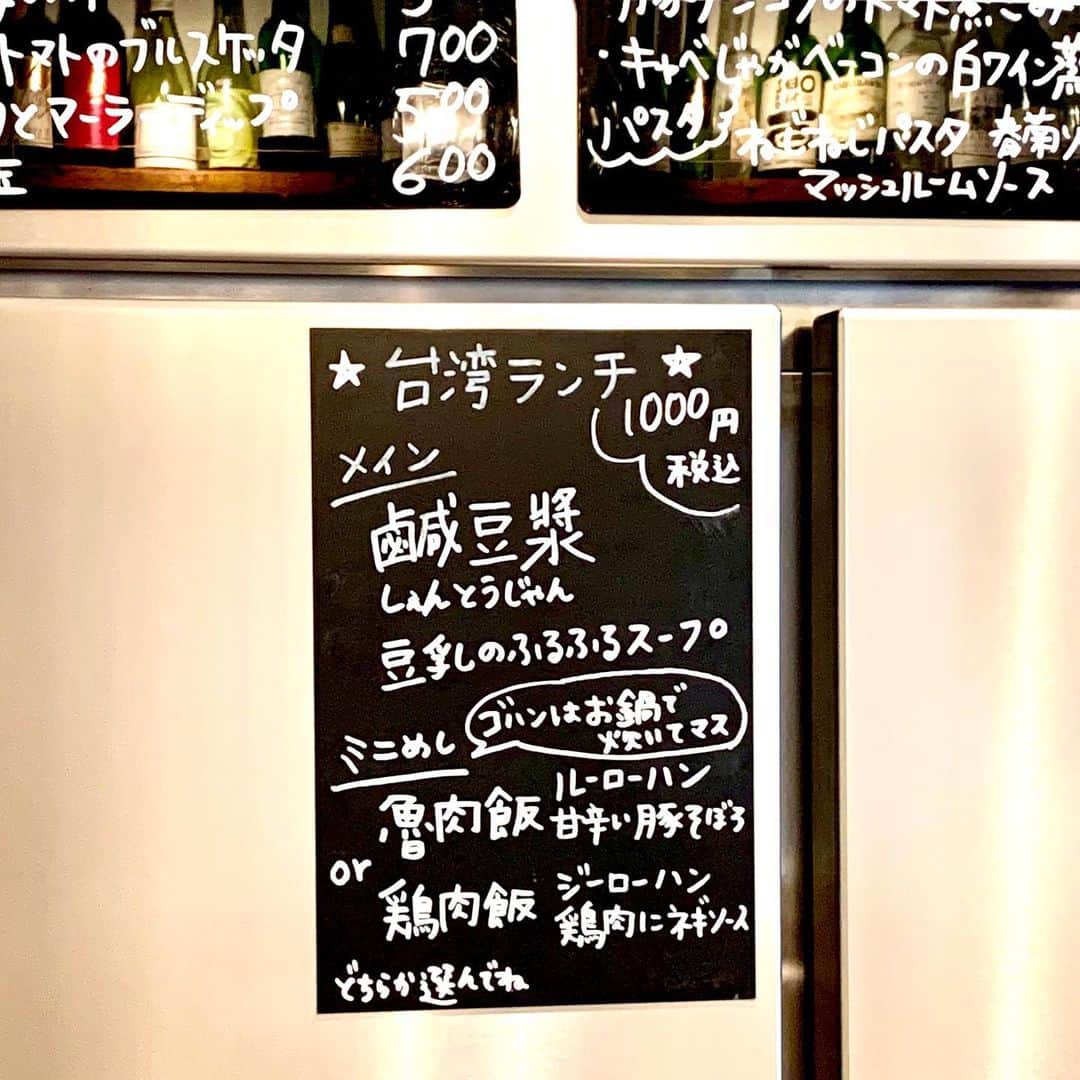 トマトのブルスケッタ 700
とマーラーディップ 500
600
・キャベじゃがベーコンの白ワイン蒸
パスタ ねじねじパスタ 春菊ソ
マッシュルームソース
★台湾ランチ★
1000円
税込
メイン
鹹豆漿
しぇんとうじゃん
豆乳のふるふるスープ
ゴハンはお鍋で
炊いてマス
ミニめし
魯肉飯 ルーローハン
甘辛い豚そぼろ
or
鶏肉飯 ジーローハン
鶏肉にネギソース
どちらか選んでね